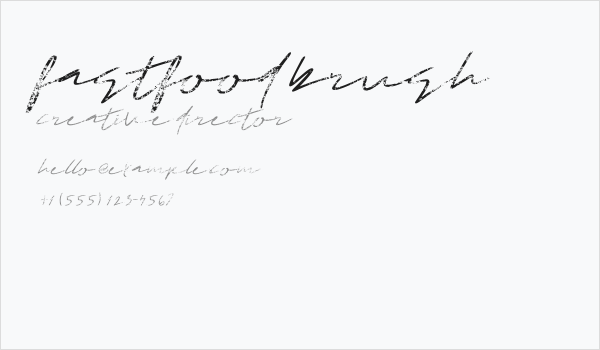 fastfoodbrush
creative director
hello@example.com
+1 (555) 123-4567